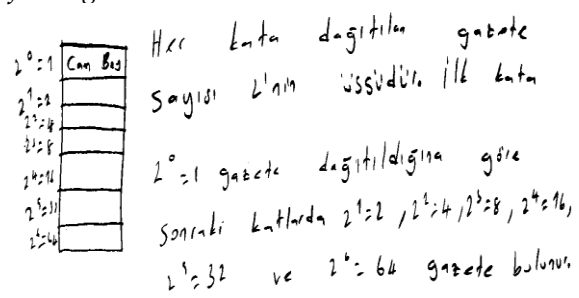 2⁰=1 Can Bey
2¹=2
2²=4
2³=8
2⁴=16
2⁵=32
2⁶=64
Her kata dağıtılan gazete
sayısı 2'nin üssüdür. İlk kata
2⁰=1 gazete dağıtıldığına göre
Sonraki katlarda 2¹=2, 2²=4, 2³=8, 2⁴=16,
2⁵=32 ve 2⁶=64 gazete bulunur.